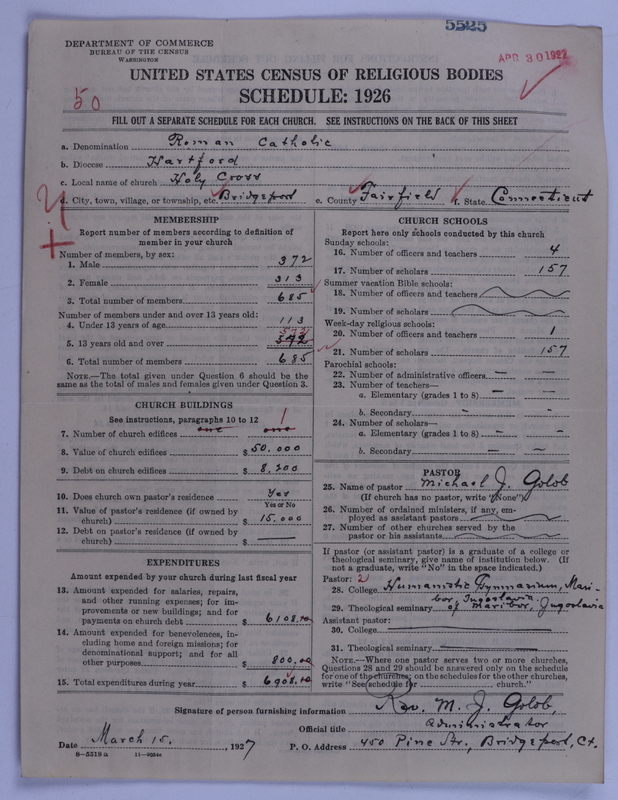 5525
DEPARTMENT OF COMMERCE
BUREAU OF THE CENSUS
WASHINGTON
APR 30 1927
UNITED STATES CENSUS OF RELIGIOUS BODIES
SCHEDULE: 1926
50
FILL OUT A SEPARATE SCHEDULE FOR EACH CHURCH. SEE INSTRUCTIONS ON THE BACK OF THIS SHEET
a. Denomination Roman Catholic
b. Diocese Hartford
c. Local name of church Holy Cross
d. City, town, village, or township, etc. Bridgeport e. County Fairfield f. State Connecticut
MEMBERSHIP
Report number of members according to definition of
member in your church
Number of members, by sex:
1. Male 372
2. Female 313
3. Total number of members 685
Number of members under and over 13 years old:
4. Under 13 years of age 113
572
5. 13 years old and over 572
6. Total number of members 685
NOTE.—The total given under Question 6 should be the
same as the total of males and females given under Question 3.
CHURCH BUILDINGS
See instructions, paragraphs 10 to 12
7. Number of church edifices one one 1
8. Value of church edifices $ 50.000
9. Debt on church edifices $ 8.200
10. Does church own pastor's residence Yes
Yes or No
11. Value of pastor's residence (if owned by
church) $ 15.000
12. Debt on pastor's residence (if owned by
church) $ —
EXPENDITURES
Amount expended by your church during last fiscal year
13. Amount expended for salaries, repairs,
and other running expenses; for im-
provements or new buildings; and for
payments on church debt $ 6108.10
14. Amount expended for benevolences, in-
cluding home and foreign missions; for
denominational support; and for all
other purposes $ 800.00
15. Total expenditures during year $ 6908.10
CHURCH SCHOOLS
Report here only schools conducted by this church
Sunday schools:
16. Number of officers and teachers 4
17. Number of scholars 157
Summer vacation Bible schools:
18. Number of officers and teachers
19. Number of scholars
Week-day religious schools:
20. Number of officers and teachers 1
21. Number of scholars 157
Parochial schools:
22. Number of administrative officers — —
23. Number of teachers—
a. Elementary (grades 1 to 8) — —
b. Secondary - -
24. Number of scholars—
a. Elementary (grades 1 to 8) — —
b. Secondary — —
PASTOR
25. Name of pastor Michael J. Golob
(If church has no pastor, write "None")
26. Number of ordained ministers, if any, em-
ployed as assistant pastors
27. Number of other churches served by the
pastor or his assistants
If pastor (or assistant pastor) is a graduate of a college or
theological seminary, give name of institution below. (If
not a graduate, write "No" in the space indicated.)
Pastor: 2
28. College Humanistic Gymnasium, Mari-
bor, Jugoslavia.
29. Theological seminary of Maribor, Jugoslavia
Assistant pastor:
30. College
31. Theological seminary
NOTE.—Where one pastor serves two or more churches,
Questions 28 and 29 should be answered only on the schedule
for one of the churches; on the schedules for the other churches,
write "See schedule for church."
Signature of person furnishing information Rev. M. J. Golob,
Official title Administrator
Date March 15, 1927 P. O. Address 450 Pine Str., Bridgeport, Ct.
8—5519 a 11—9034